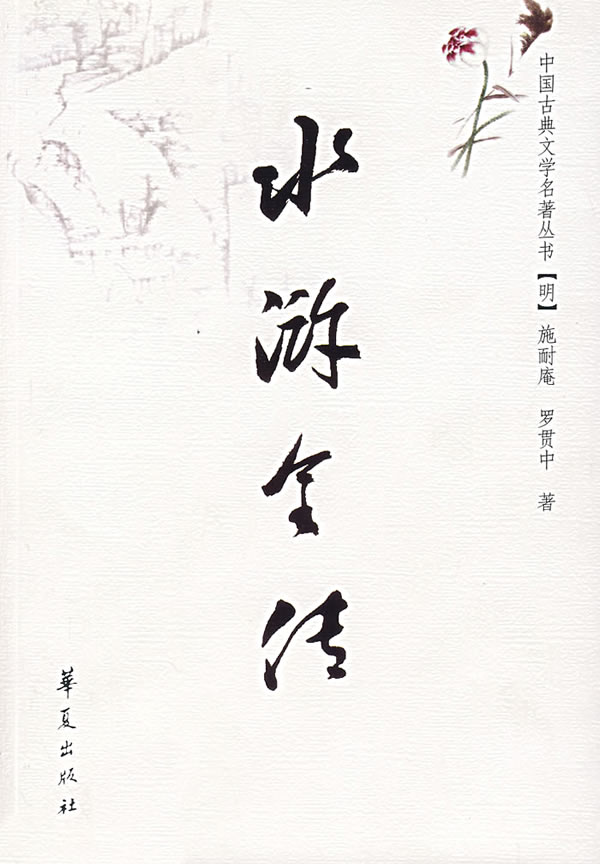 中国古典文学名著丛书【明】施耐庵 罗贯中 著
水浒全传
華夏出版社